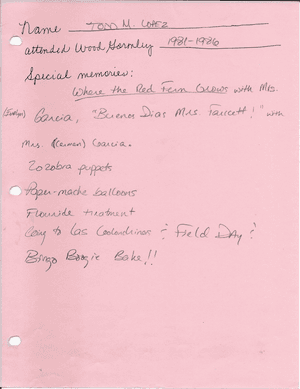 Name TOM M. LOPEZ
attended Wood Gormley 1981-1986
Special memories:
Where the Red Fern Grows with Mrs.
(Evelyn) Garcia, "Buenos Dias Mrs Faucett!" with
Mrs. (Carmen) Garcia.
Zozobra puppets
Paper-mache balloons
Flouride treatment
to Las Golondrinas : Field Day :
Bingo Boogie Bake!!